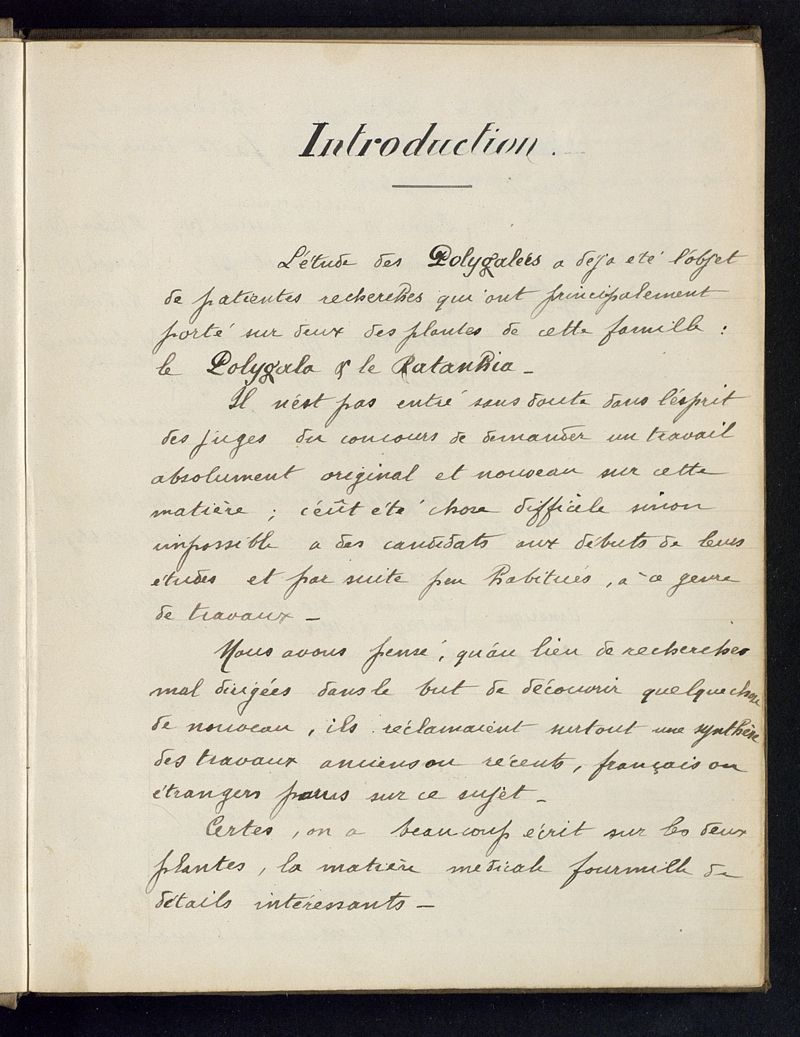 Introduction.
L'étude des Polygalées a déjà été l'objet
de patientes recherches qui ont principalement
porté sur deux des plantes de cette famille :
le Polygala & le Ratanhia _
Il n'est pas entré sans doute dans l'ésprit
des juges du concours de demander un travail
absolument original et nouveau sur cette
matière ; c'eût été chose difficile sinon
impossible a des candidats aux débuts de leurs
études et par suite peu habitués, à ce genre
de travaux _
Nous avons pensé, qu'au lieu de recherches
mal dirigées dans le but de découvrir quelque chose
de nouveau, ils réclamaient surtout une synthèse
des travaux anciens ou récents, français ou
étrangers parus sur ce sujet _
Certes, on a beaucoup écrit sur les deux
plantes, la matière médicale fourmille de
détails intéressants _